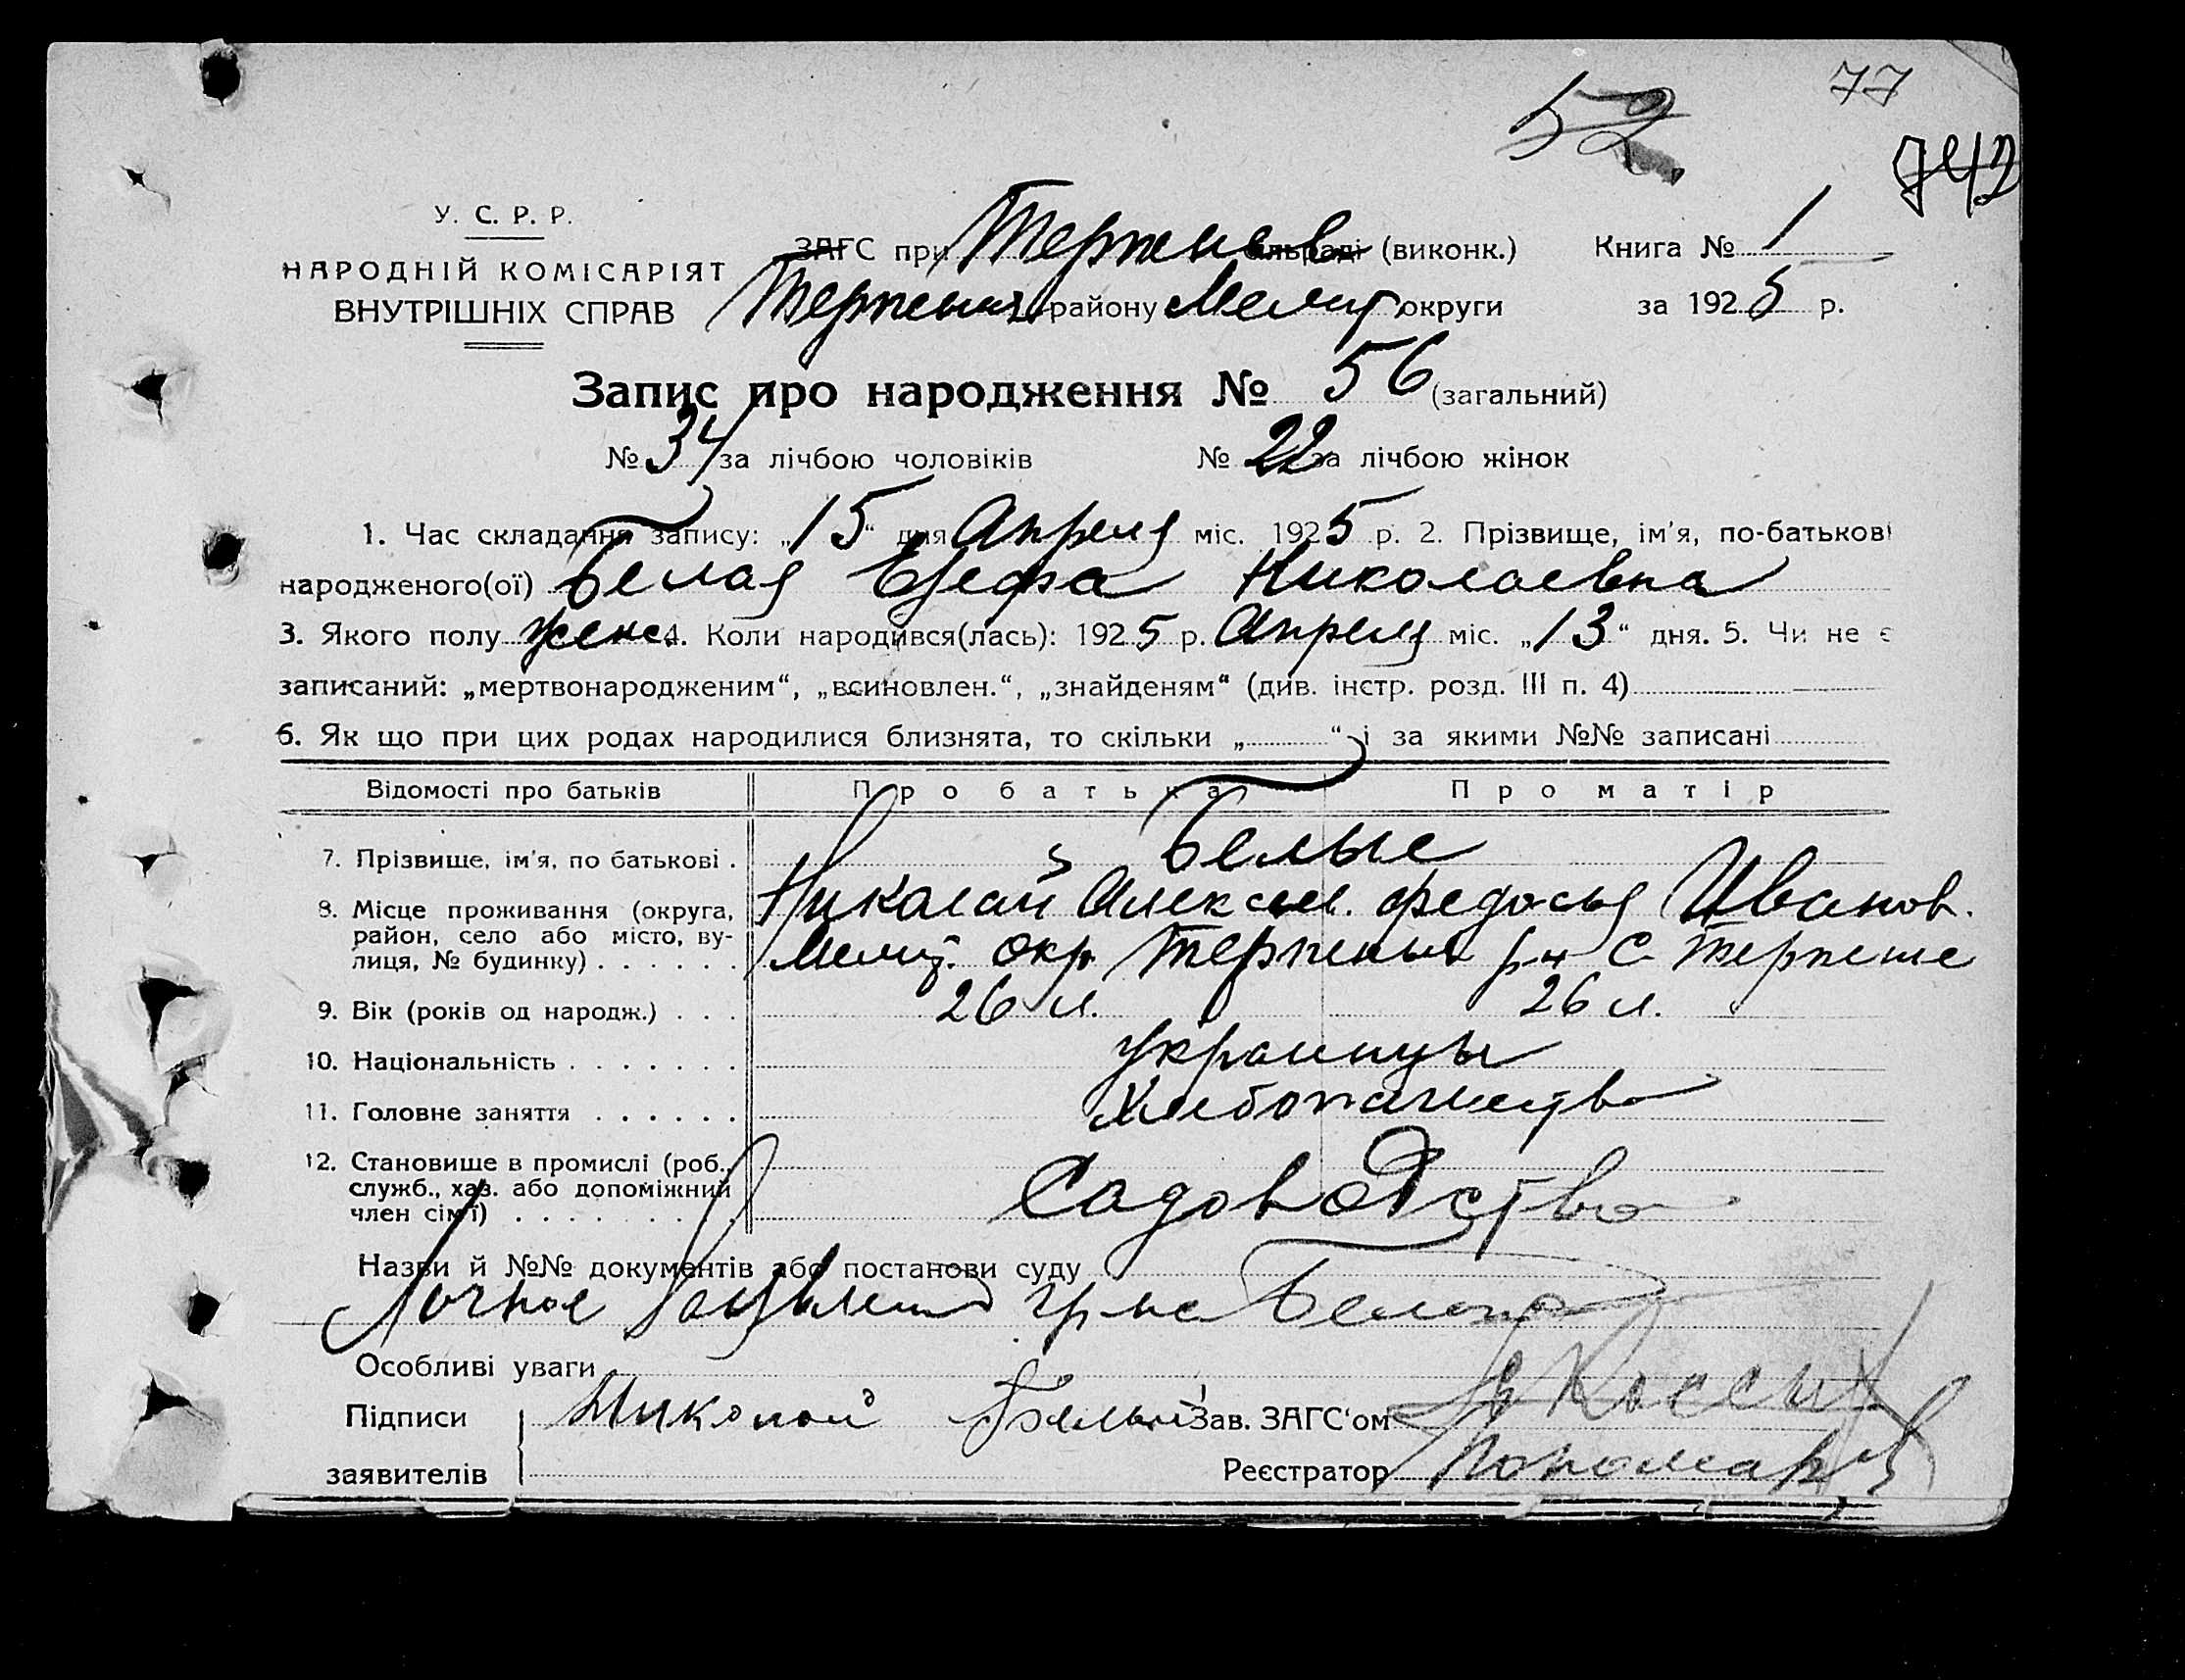 77
52
742
У. С. Р. Р.
НАРОДНІЙ КОМІСАРІЯТ
ВНУТРІШНІХ СПРАВ
ЗАГС при Терпенев сільраді (виконк.)
Книга № 1
району Мелит округи
за 1925 р.
Запис про народження № 56 (загальний)
№ 34 за лічбою чоловіків № 22 за лічбою жінок
1. Час складання запису: „15“ дня Апреля міс. 1925 р. 2. Прізвище, ім'я, по-батькові
народженого(ої) Белая Николаевна
3. Якого полу женс. 4. Коли народився(лась): 1925 р. Апреля міс. „13“ дня. 5. Чи не є
записаний: „мертвонародженим“, „всиновлен.“, „знайденям“ (див. інстр. розд. III п. 4)
6. Як що при цих родах народилися близнята, то скільки „ “ і за якими №№ записані
Відомості про батьків Про батька Про матір
7. Прізвище, ім'я, по батькові . Белые
8. Місце проживання (округа, район, село або місто, ву-
лиця, № будинку) . . . . . .
Николай Алексе. Федосья Иванов.
Мелит. окр. Терпенья р-н С. Терпение
9. Вік (років од народж.) . . . 26 л. 26 л.
10. Національність . . . . . . . Украинцы
11. Головне заняття . . . . . . Хлебопашество
12. Становище в промислі (роб.,
служб., хаз. або допоміжний
член сім'ї) . . . . . . . . Садоводство
Назви й №№ документів або постанови суду
Личное гр-на Белого
Особливі уваги
Підписи Николай Белый Зав. ЗАГС'ом
заявителів Реєстратор Пономарев